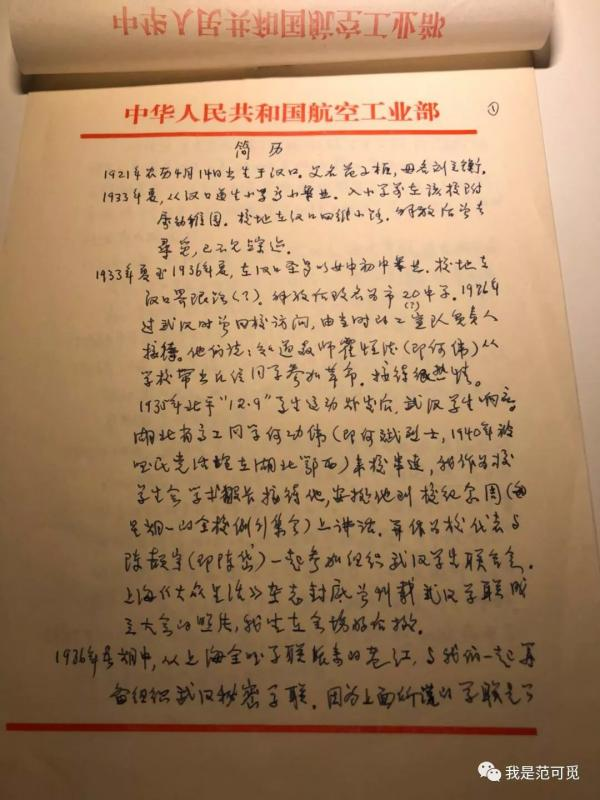 中华人民共和国航空工业部
中华人民共和国航空工业部
①
简 历
1921年农历4月14日出生于汉口。父名范子桓,母名刘
1933年夏,从汉口道生小学高小毕业。入小学前在该校附
属幼稚园。校地在汉口四维小路,解放后曾去
寻觅,已不见踪迹。
1933年夏至1936年夏,在汉口圣罗以女中初中毕业。校地在
汉口界限路(?)。解放后改名为市20中了。1986年
(?)
过武汉时曾回校访问,由当时的工宣队负责人
接待。他们说:知道教师霍恒德(即何伟)从
学校带出几位同学参加革命。接待很热情。
1935年北平“12.9”学生运动爆发后,武汉学生响应。
湖北省高工同学何功伟(即何斌烈士,1940年被
国民党活埋在湖北鄂西)来校串连,我作为校
学生会学术部长接待他,安排他到校纪念周(每
星期一的全校例行集会)上讲话。并作为校代表与
陈(即陈岱)一起参加组织武汉学生联合会。
上海《大众生活》杂志封底曾刊载武汉学联成
立大会的照片,我坐在会场好后排。
1936年春期中,从上海全国学联后来的江,与我们一起再
备组织武汉秘密学联。因为上面所说的学联是了
我是范可觅